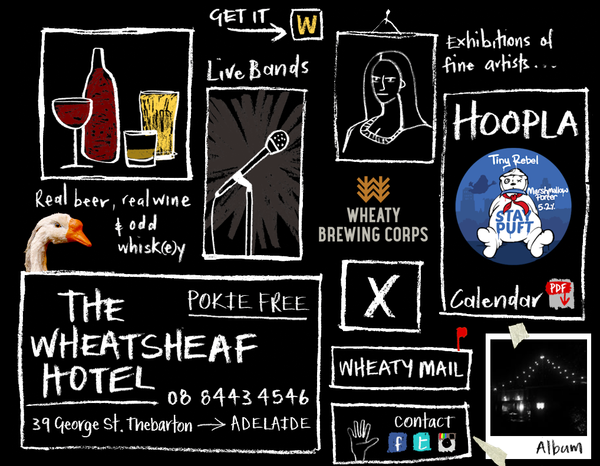 GET IT
W
Live Bands
Exhibitions of
fine artists...
HOOPLA
Tiny Rebel
Marshmallow
Porter
5.2%
STAY
PUFT
Real beer, real wine
& odd
whisk(e)y
WHEATY
BREWING CORPS
X
Calendar
PDF
THE
WHEATSHEAF
HOTEL
POKIE FREE
08 8443 4546
39 George St. Thebarton → ADELAIDE
WHEATY MAIL
Contact
f
t
Album